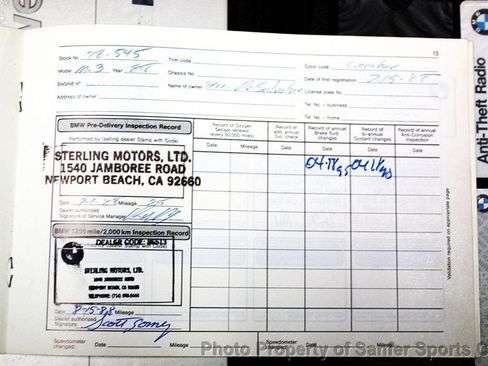 13
Stock No. 12-545 Trim code Color code Cinnabar
Model M-3 Year 88 Chassis No. Date of first registration 7-15-88
ENGINE Nº Name of owner License plate No.
Address of owner Tel. No. - business
Tel. No. - home
BMW Pre-Delivery Inspection Record
Performed by (selling dealer Stamp with Code)
STERLING MOTORS, LTD.
1540 JAMBOREE ROAD
NEWPORT BEACH, CA 92660
Date Mileage 25
Dealer authorized
Signature of Service Manager
BMW 1200 mile/2,000 km Inspection Record
DEALER CODE:
STERLING MOTORS, LTD.
1540 JAMBOREE ROAD
NEWPORT BEACH CA 92660
Date 8-15-88 Mileage
Dealer authorized
Signature Scott
Record of Oxygen
Sensor renewal
(every 50,000 miles)
Date Mileage
Record of
add. annual
Svc. check
Date
Record of annual
Brake fluid
changes
Date
Record of
bi-annual
Coolant changes
Date
Record of annual
Anti-Corrosion
Inspection
Date
Validation required on appropriate page
Speedometer
changed: Date Mileage
Speedometer
changed: Date Mileage
Anti-Theft Radio
Photo Property of Sanfer Sports